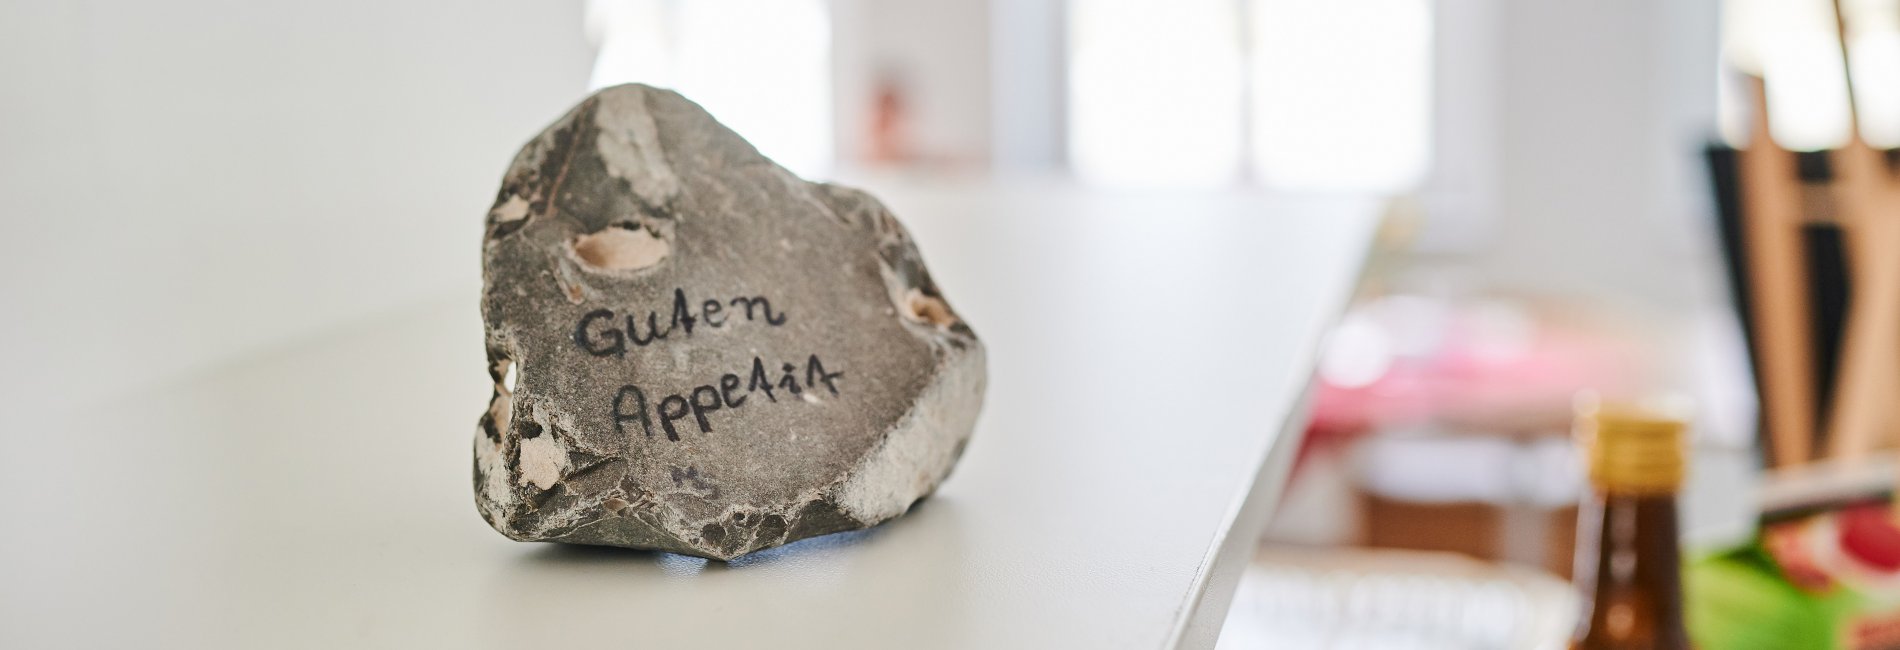 Guten
Appetit
MS